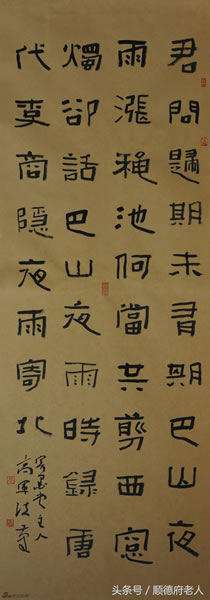 君問歸期未有期巴山夜
雨漲秋池何當共剪西窗
燭卻話巴山夜雨時録唐
代李商隱夜雨寄北
主人
高軍
头条号 / 顺德府老人